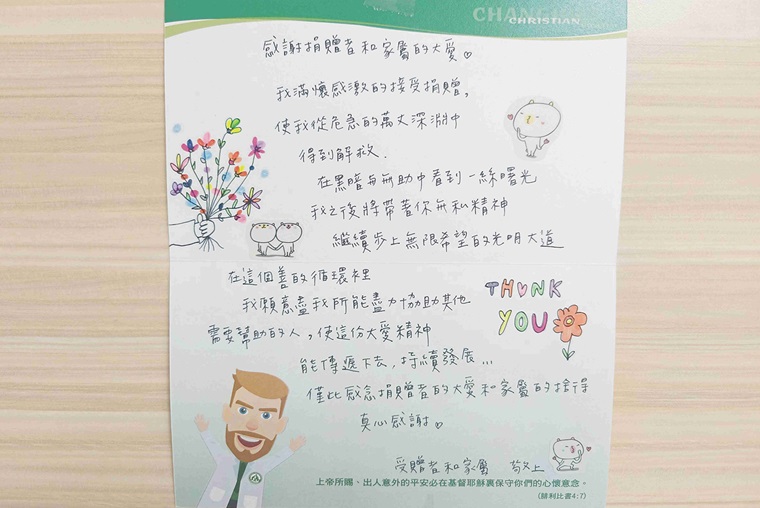 CHRISTIAN
感謝捐贈者和家屬的大愛♡
我滿懷感激的接受捐贈,
使我從危急的萬丈深淵中
得到解救.
在黑暗与無助中看到一絲曙光
我之後將帶著你無私精神
繼續步上無限希望的光明大道
在這個善的循環裡
我願意盡我所能盡力協助其他
需要幫助的人，使這份大愛精神
能傳遞下去，持續發展...
THANK
YOU
僅此感念捐贈者的大愛和家屬的捨得
真心感謝♡
受贈者和家屬 敬上
上帝所賜、出人意外的平安必在基督耶穌裏保守你們的心懷意念。
(腓利比書4:7)